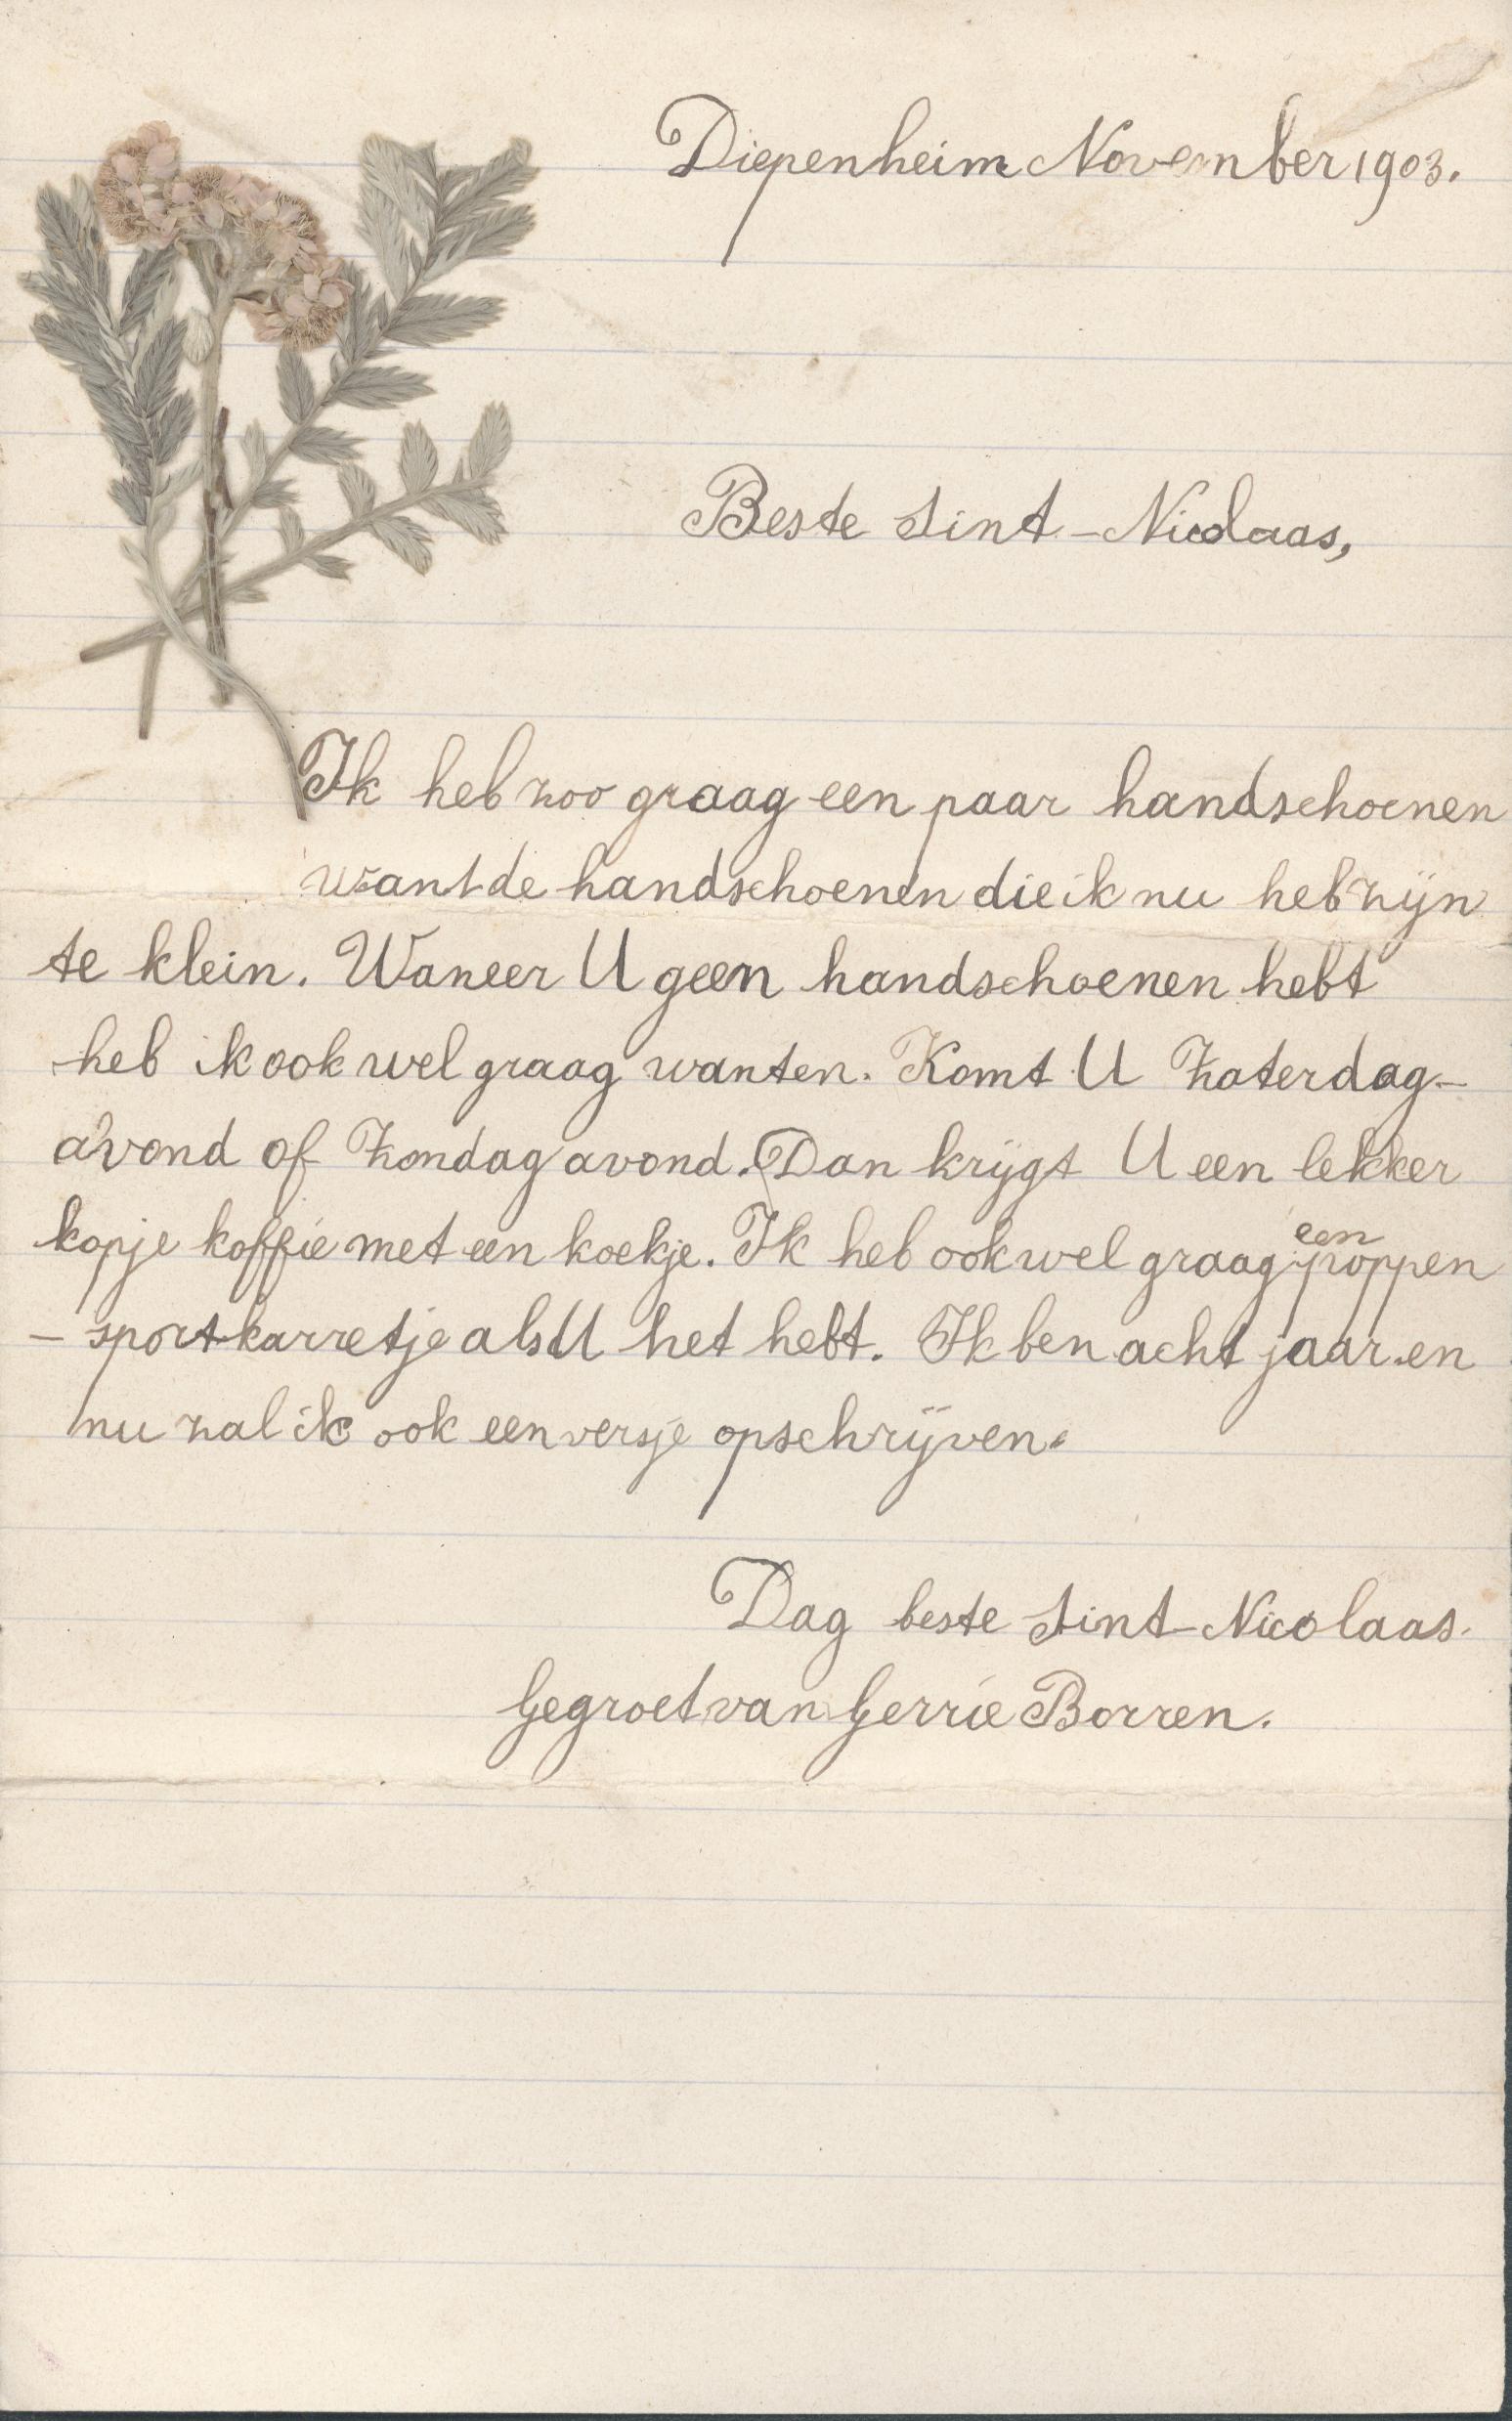 Diepenheim November 1903.
Beste Sint-Nicolaas,
Ik heb zoo graag een paar handschoenen
want de handschoenen die ik nu heb zijn
te klein. Waneer U geen handschoenen hebt
heb ik ook wel graag wanten. Komt U Zaterdag-
avond of Zondag avond. Dan krijgt U een lekker
kopje koffie met een koekje. Ik heb ook wel graag een poppen
- sportkarretje als U het hebt. Ik ben acht jaar en
nu zal ik ook een versje opschrijven.
Dag beste Sint-Nicolaas.
Gegroet van Gerrie Borren.